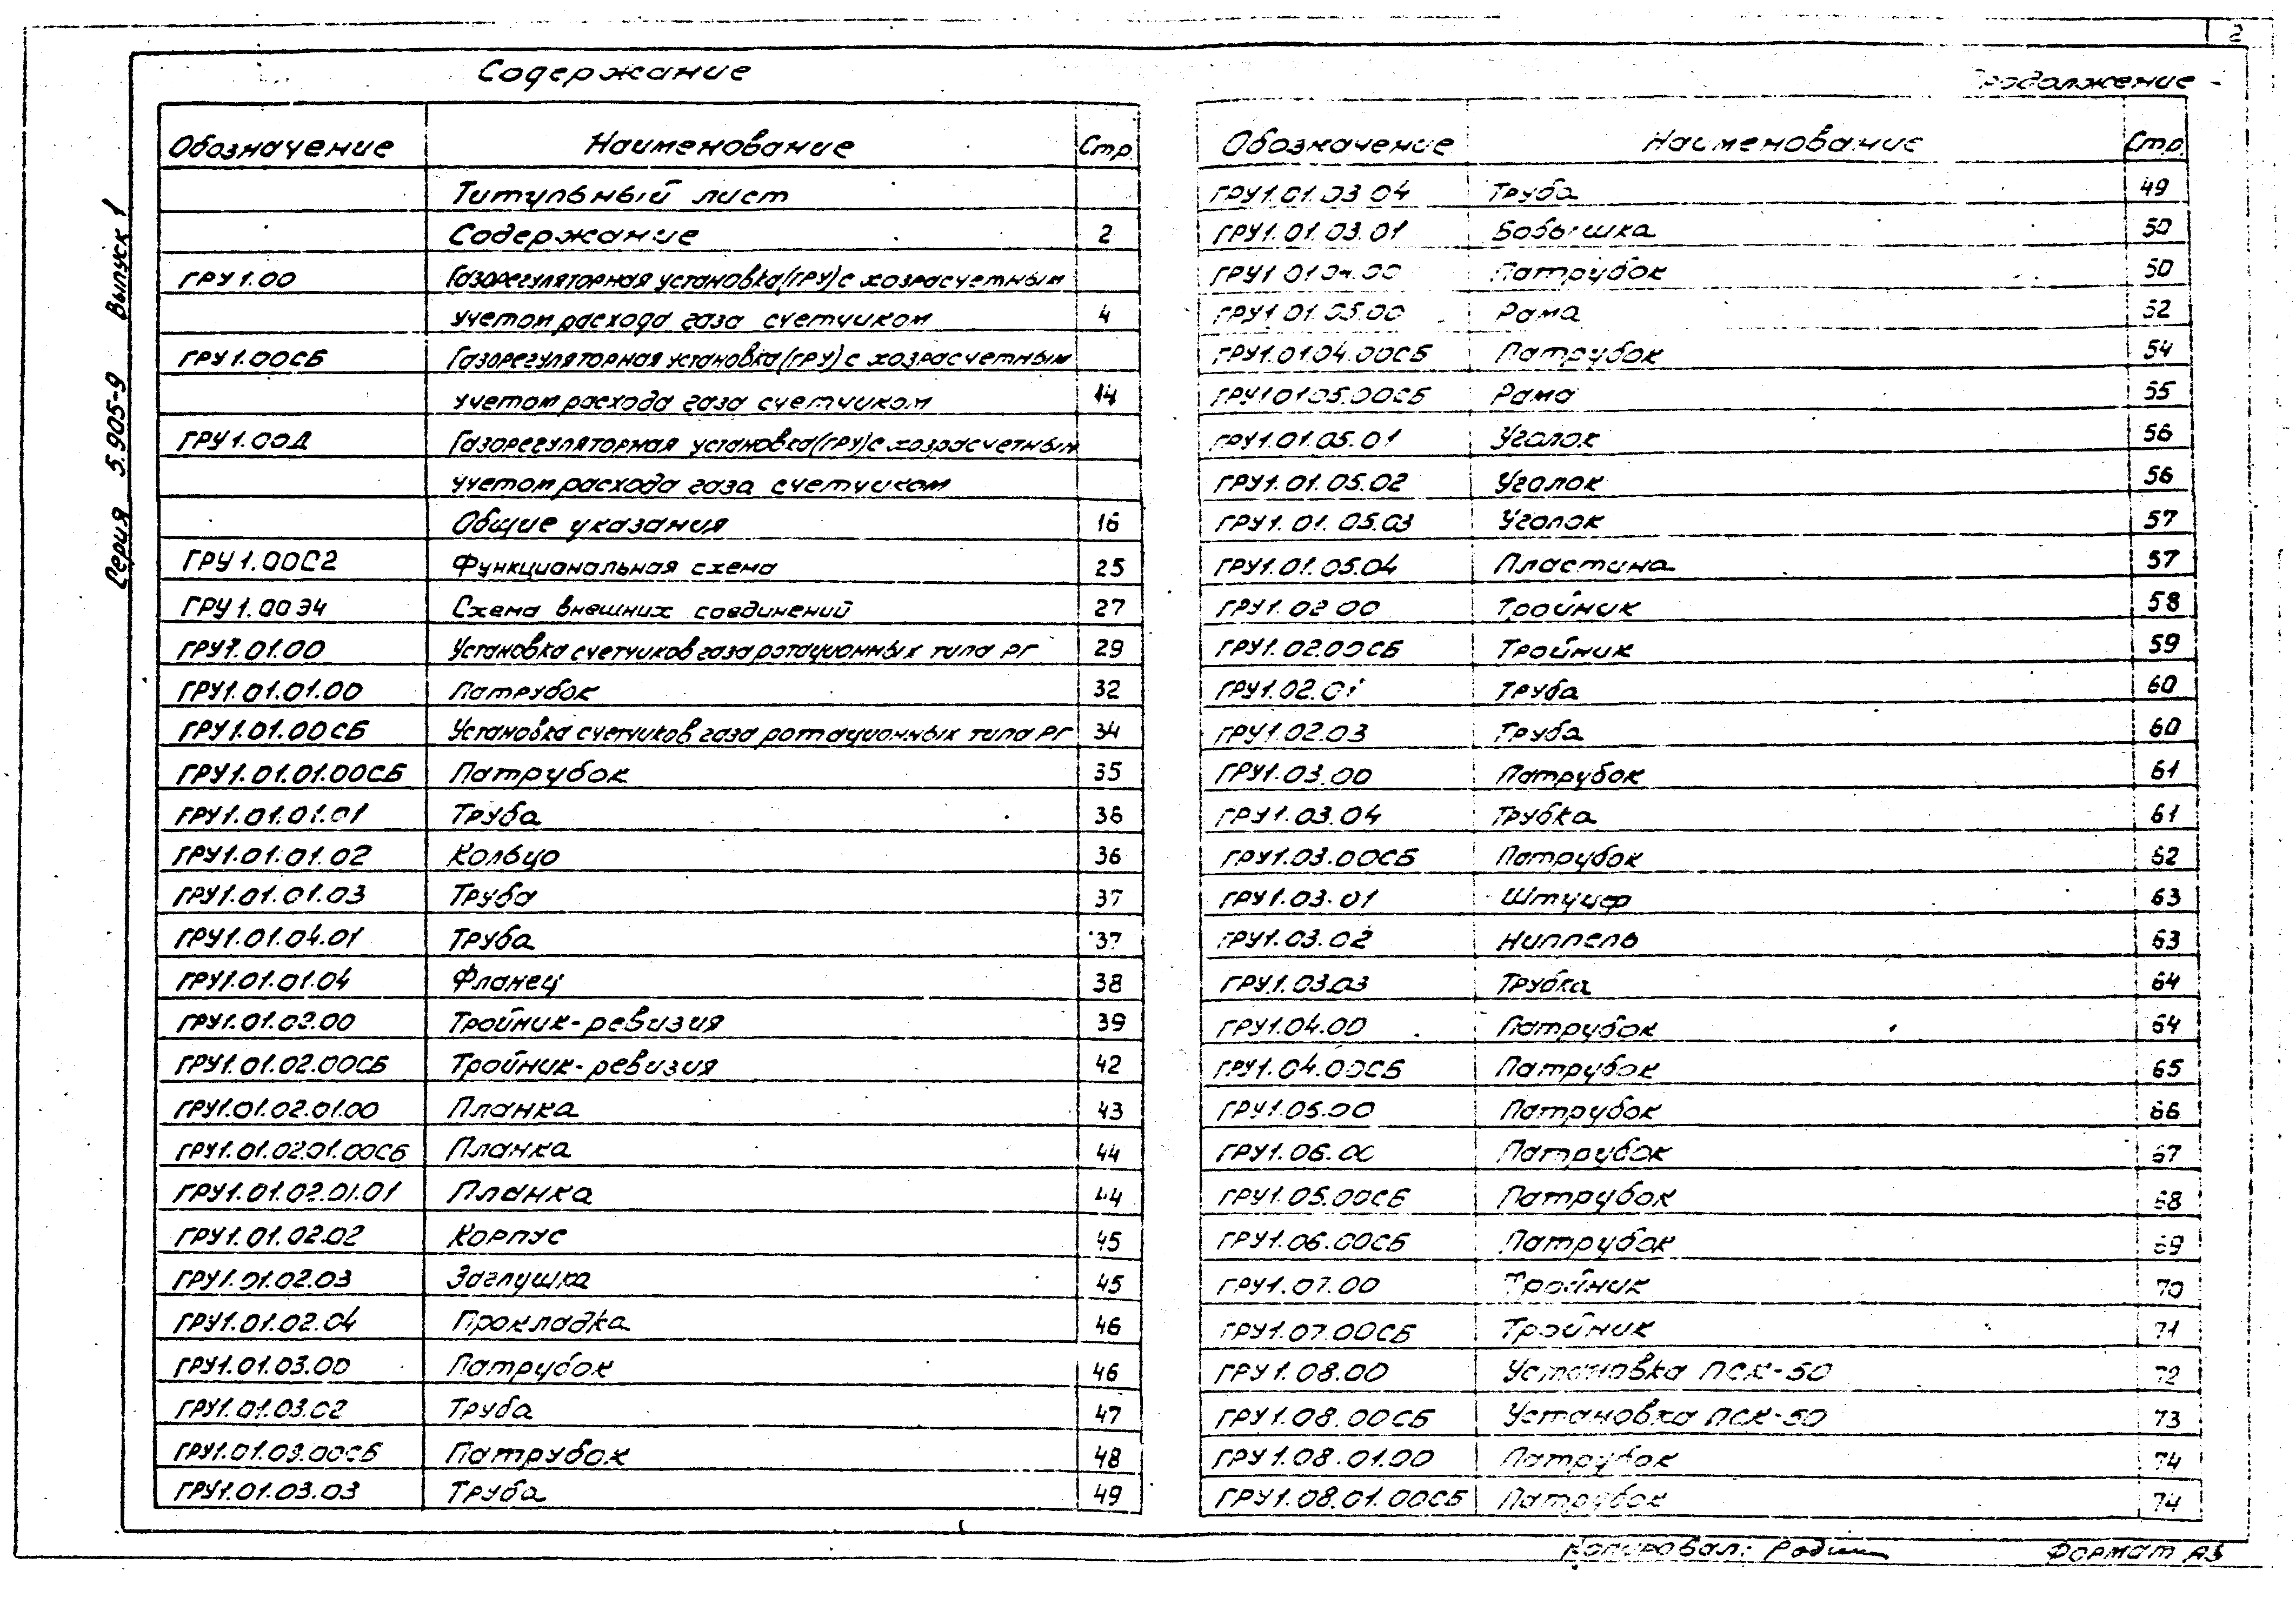 2
Серия 5.905-9 Выпуск 1
Содержание
Обозначение Наименование Стр.
Титульный лист
Содержание 2
ГРУ1.00 Газорегуляторная установка(ГРУ) с хозрасчетным
учетом расхода газа счетчиком 4
ГРУ1.00СБ Газорегуляторная установка(ГРУ) с хозрасчетным
учетом расхода газа счетчиком 14
ГРУ1.00Д Газорегуляторная установка(ГРУ) с хозрасчетным
учетом расхода газа счетчиком
Общие указания 16
ГРУ1.00С2 Функциональная схема 25
ГРУ1.00Э4 Схема внешних соединений 27
ГРУ1.01.00 Установка счетчиков газа ротационных типа РГ 29
ГРУ1.01.01.00 Патрубок 32
ГРУ1.01.00СБ Установка счетчиков газа ротационных типа РГ 34
ГРУ1.01.01.00СБ Патрубок 35
ГРУ1.01.01.01 Труба 36
ГРУ1.01.01.02 Кольцо 36
ГРУ1.01.01.03 Труба 37
ГРУ1.01.04.01 Труба 37
ГРУ1.01.01.04 Фланец 38
ГРУ1.01.02.00 Тройник-ревизия 39
ГРУ1.01.02.00СБ Тройник-ревизия 42
ГРУ1.01.02.01.00 Планка 43
ГРУ1.01.02.01.00СБ Планка 44
ГРУ1.01.02.01.01 Планка 44
ГРУ1.01.02.02 Корпус 45
ГРУ1.01.02.03 Заглушка 45
ГРУ1.01.02.04 Прокладка 46
ГРУ1.01.03.00 Патрубок 46
ГРУ1.01.03.02 Труба 47
ГРУ1.01.03.00СБ Патрубок 48
ГРУ1.01.03.03 Труба 49
Продолжение
Обозначение Наименование Стр.
ГРУ1.01.03.04 Труба 49
ГРУ1.01.03.01 Бобышка 50
ГРУ1.01.04.00 Патрубок 50
ГРУ1.01.05.00 Рама 52
ГРУ1.01.04.00СБ Патрубок 54
ГРУ1.01.05.00СБ Рама 55
ГРУ1.01.05.01 Уголок 56
ГРУ1.01.05.02 Уголок 56
ГРУ1.01.05.03 Уголок 57
ГРУ1.01.05.04 Пластина 57
ГРУ1.02.00 Тройник 58
ГРУ1.02.00СБ Тройник 59
ГРУ1.02.01 Труба 60
ГРУ1.02.03 Труба 60
ГРУ1.03.00 Патрубок 61
ГРУ1.03.04 Трубка 61
ГРУ1.03.00СБ Патрубок 62
ГРУ1.03.01 Штуцер 63
ГРУ1.03.02 Ниппель 63
ГРУ1.03.03 Трубка 64
ГРУ1.04.00 Патрубок 64
ГРУ1.04.00СБ Патрубок 65
ГРУ1.05.00 Патрубок 66
ГРУ1.06.00 Патрубок 67
ГРУ1.05.00СБ Патрубок 68
ГРУ1.06.00СБ Патрубок 69
ГРУ1.07.00 Тройник 70
ГРУ1.07.00СБ Тройник 71
ГРУ1.08.00 Установка ПСК-50 72
ГРУ1.08.00СБ Установка ПСК-50 73
ГРУ1.08.01.00 Патрубок 74
ГРУ1.08.01.00СБ Патрубок 74
Копировал: Формат А3